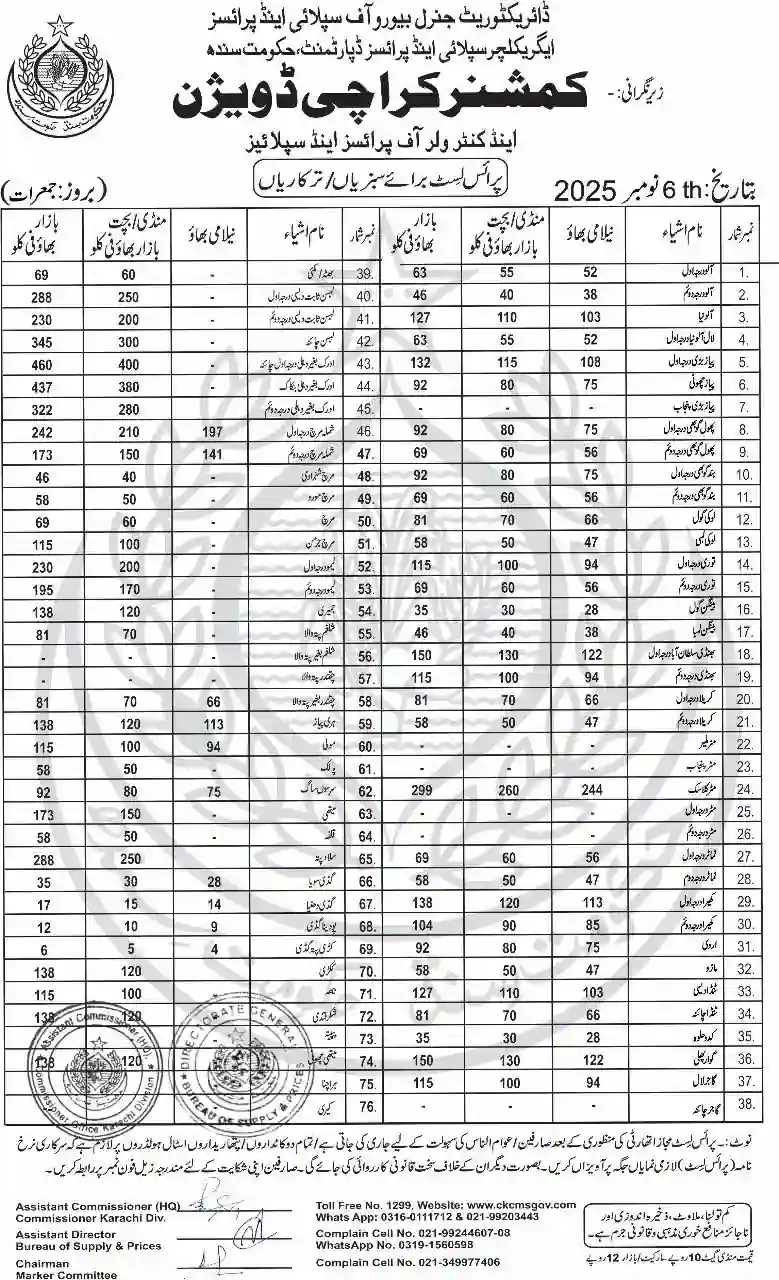 ڈائریکٹوریٹ جنرل بیورو آف سپلائی اینڈ پرائسز
ایگریکلچر سپلائی اینڈ پرائسز ڈپارٹمنٹ، حکومت سندھ
زیر نگرانی:-
کمشنر کراچی ڈویژن
اینڈ کنٹرولر آف پرائسز اینڈ سپلائیز
پرائس لسٹ برائے سبزیاں/ترکاریاں
بتاریخ: 6 th نومبر 2025
(بروز: جمعرات)
نمبر شمار نام اشیاء نیلامی بھاؤ منڈی/بچت بازار بھاؤ فی کلو بازار بھاؤ فی کلو
1. آلو درجہ اول 52 55 63
2. آلو درجہ دوئم 38 40 46
3. آلو نیا 103 110 127
4. لال آلو نیا درجہ اول 52 55 63
5. پیاز بڑی درجہ اول 108 115 132
6. پیاز چھوٹی 75 80 92
7. پیاز بڑی پنجاب - - -
8. پھول گوبھی درجہ اول 75 80 92
9. پھول گوبھی درجہ دوئم 56 60 69
10. بند گوبھی درجہ اول 75 80 92
11. بند گوبھی درجہ دوئم 56 60 69
12. لوکی گول 66 70 81
13. لوکی لمبی 47 50 58
14. توری درجہ اول 94 100 115
15. توری درجہ دوئم 56 60 69
16. بینگن گول 28 30 35
17. بینگن لمبا 38 40 46
18. بھنڈی سلطان آباد درجہ اول 122 130 150
19. بھنڈی درجہ دوئم 94 100 115
20. کریلا درجہ اول 66 70 81
21. کریلا درجہ دوئم 47 50 58
22. مٹر ملیر - - -
23. مٹر پنجاب - - -
24. مٹر کلاسک 244 260 299
25. مٹر درجہ اول - - -
26. مٹر درجہ دوئم - - -
27. ٹماٹر درجہ اول 56 60 69
28. ٹماٹر درجہ دوم 47 50 58
29. کھیرا درجہ اول 113 120 138
30. کھیرا درجہ دوئم 85 90 104
31. اروی 75 80 92
32. مارو 47 50 58
33. ٹنڈا دیسی 103 110 127
34. ٹنڈا چائنہ 66 70 81
35. کدو حلوہ 28 30 35
36. گوار پھلی 122 130 150
37. گاجر لال 94 100 115
38. گاجر چائنہ - - -
نمبر شمار نام اشیاء نیلامی بھاؤ منڈی/بچت بازار بھاؤ فی کلو بازار بھاؤ فی کلو
39. بھٹہ/مکئی - 60 69
40. لہسن ثابت دیسی درجہ اول - 250 288
41. لہسن ثابت دیسی درجہ دوئم - 200 230
42. لہسن چائنہ - 300 345
43. ادرک بغیر دھلی درجہ اول چائنہ - 400 460
44. ادرک بغیر دھلی بنکاک - 380 437
45. ادرک بغیر دھلی درجہ دوئم - 280 322
46. شملہ مرچ درجہ اول 197 210 242
47. شملہ مرچ درجہ دوئم 141 150 173
48. مرچ شہزادی - 40 46
49. مرچ مورو - 50 58
50. مرچ - 60 69
51. مرچ جرمن - 100 115
52. لیمو درجہ اول - 200 230
53. لیمو درجہ دوئم - 170 195
54. جمیری - 120 138
55. شلغم پتہ والا - 70 81
56. شلغم بغیر پتہ والا - - -
57. چقندر پتہ والا - - -
58. چقندر بغیر پتہ والا 66 70 81
59. ہری پیاز 113 120 138
60. مولی 94 100 115
61. پالک - 50 58
62. سرسوں ساگ 75 80 92
63. میتھی - 150 173
64. قلفہ - 50 58
65. سلاد پتہ - 250 288
66. گڈی سویا 28 30 35
67. گڈی دھنیا 14 15 17
68. پودینا گڈی 9 10 12
69. کڑی پتہ گڈی 4 5 6
70. ککڑی 120 138
71. 100 115
72. شکرقندی 120 138
73.
74. میتھی 120 138
75. ہرا چنا
76. کیری
Assistant Commissioner (HQ)
Commissioner Office Karachi Division
DIRECTORATE GENERAL
BUREAU OF SUPPLY & PRICES
نوٹ:- پرائس لسٹ مجاز اتھارٹی کی منظوری کے بعد صارفین/عوام الناس کی سہولت کے لیے جاری کی جاتی ہے/تمام دوکانداروں/پتھاریداروں اسٹال ہولڈروں پر لازم ہے کہ سرکاری نرخ
نامہ (پرائس لسٹ) لازمی نمایاں جگہ پر آویزاں کریں۔ بصورت دیگر ان کے خلاف سخت قانونی کارروائی کی جائے گی۔ صارفین اپنی شکایت کے لئے مندرجہ زیل فون نمبر پر رابطہ کریں۔
Assistant Commissioner (HQ)
Commissioner Karachi Div.
Assistant Director
Bureau of Supply & Prices
Chairman
Marker Committee
Toll Free No. 1299, Website: www.ckcmsgov.com
Whats App: 0316-0111712 & 021-99203443
Complain Cell No. 021-99244607-08
WhatsApp No. 0319-1560598
Complain Cell No. 021-349977406
کم تولنا، ملاوٹ، ذخیرہ اندوزی اور
ناجائز منافع خوری مذہبی و قانونی جرم ہے۔
قیمت منڈی گیٹ 10 روپے مارکیٹ/بازار 12 روپے